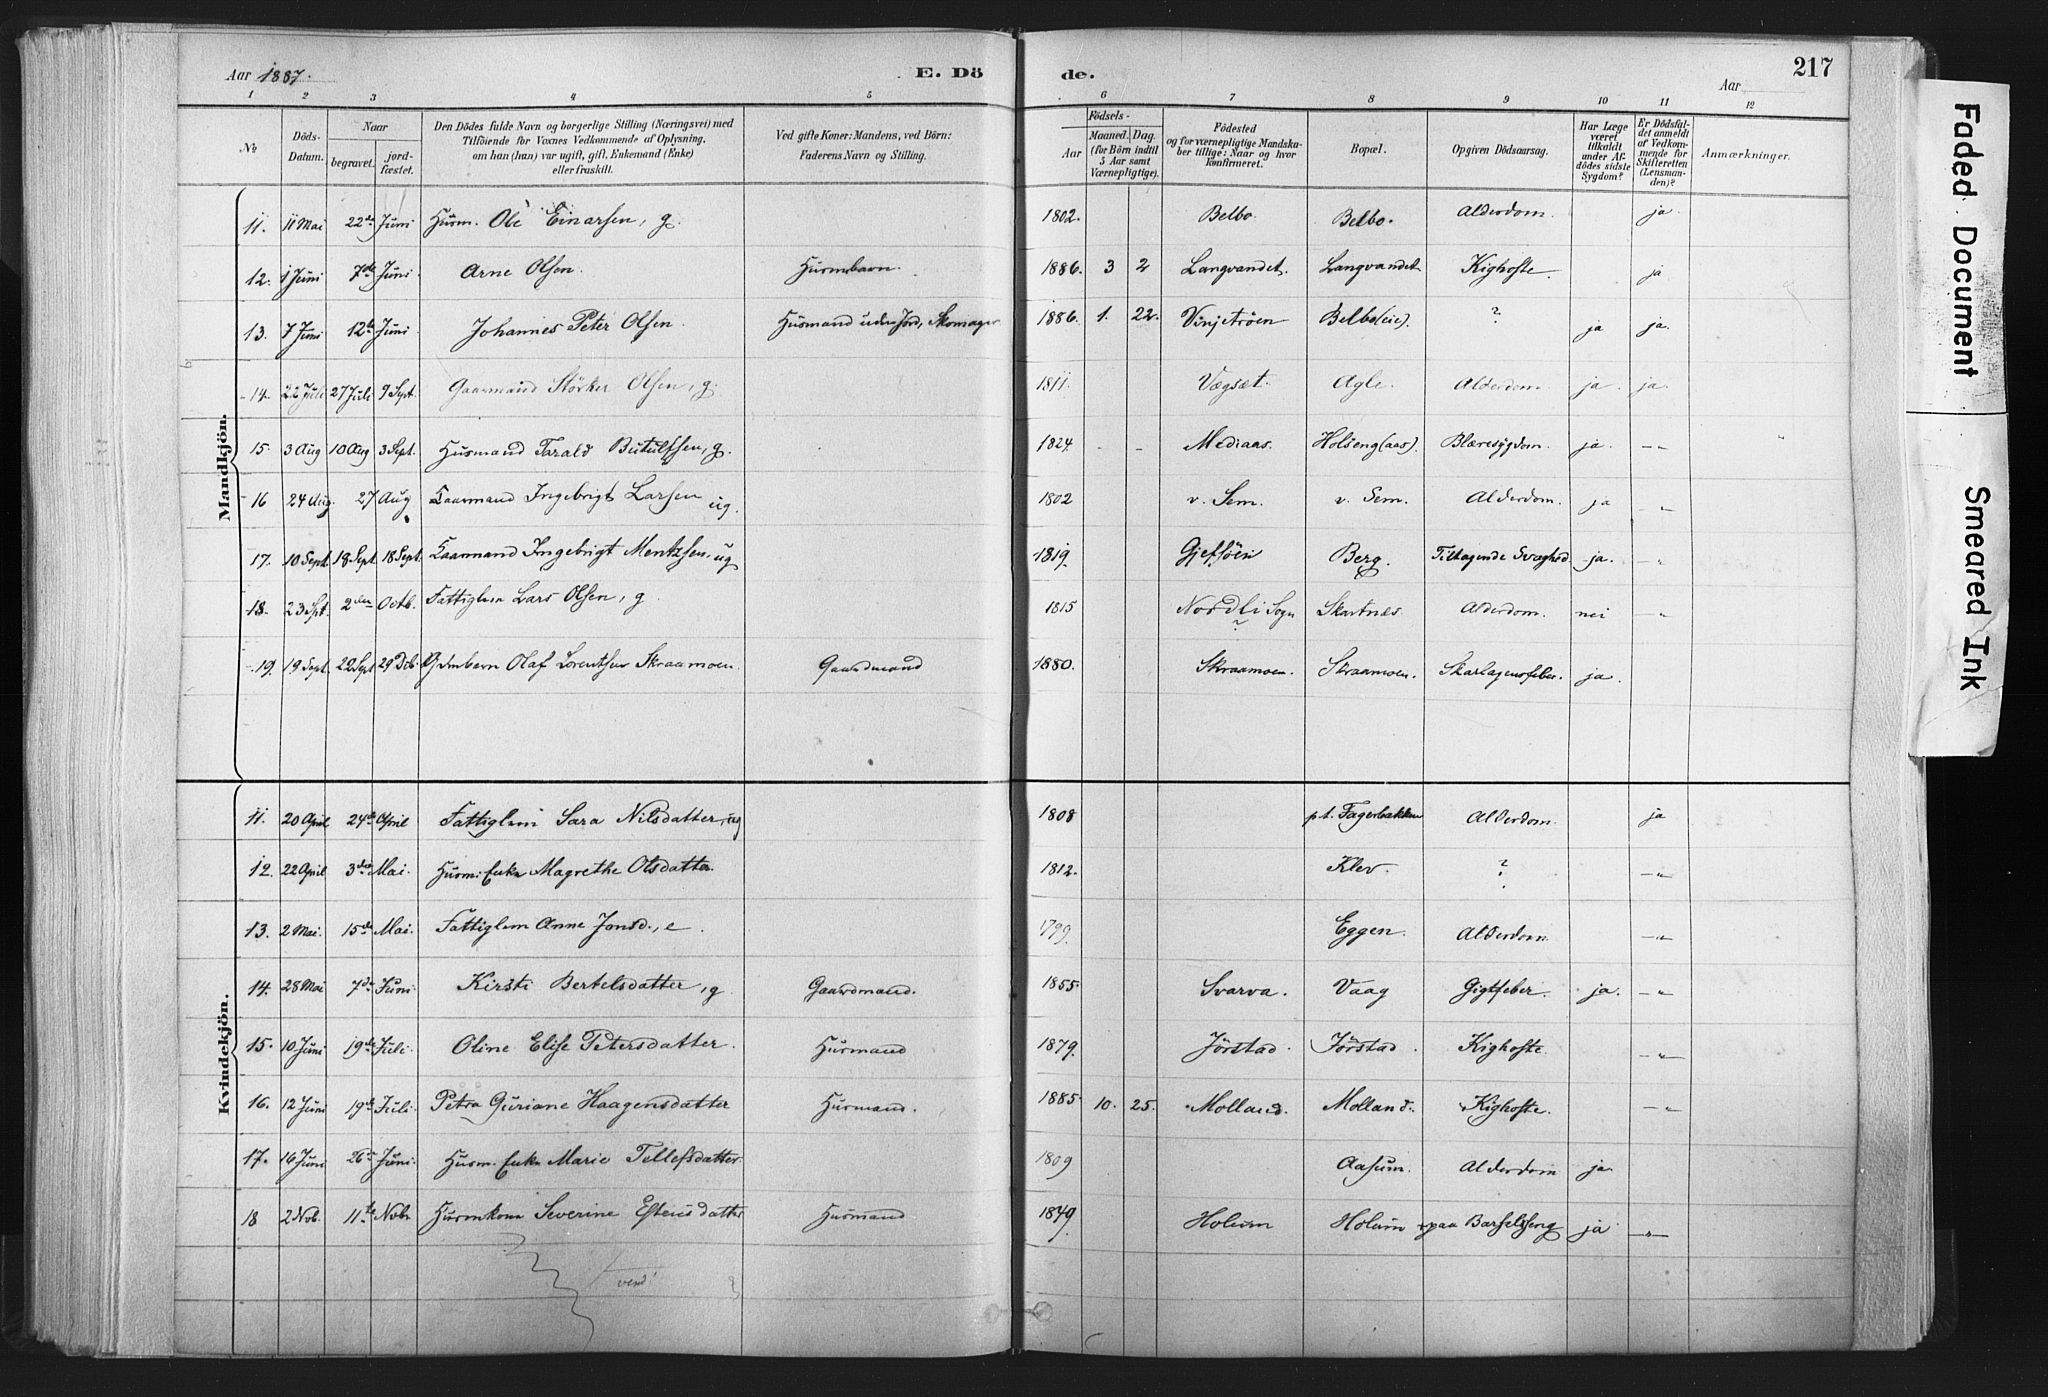 Aar 1887. E. Dö de. Aar 217
1 2 3 4 5 6 7 8 9 10 11 12
№
Döds-Datum.
Naar
begravet.
jord-fæstet.
Den Dödes fulde Navn og borgerlige Stilling (Næringsvei) med
Tilföiende for Voxnes Vedkommende af Oplysning,
om han (hun) var ugift, gift, Enkemand (Enke)
eller fraskilt.
Ved gifte Koner: Mandens, ved Börn:
Faderens Navn og Stilling.
Födsels-
Aar
Maaned. Dag.
(for Börn indtil
5 Aar samt
Værnepligtige).
Födested
og for værnepligtige Mandska-
ber tillige: Naar og hvor
konfirmeret.
Bopæl.
Opgiven Dödsaarsag.
Har Læge
været
tilkaldt
under Af-
dödes sidste
Sygdom?
Er Dödsfal-
det anmeldt
af Vedkom-
mende for
Skifteretten
(Lensman-
den)?
Anmærkninger.
Mandkjön.
11. 11 Mai 22de Juni Husm. Ole Einarsen, g. 1802. Belbo Belbo. Alderdom. ja.
12. 1 Juni 7de Juni. Arne Olsen. Husmbarn. 1886. 3 2 Langvandet. Langvandet Kighoste. ja
13. 7 Juni 12te Juni. Johannes Peter Olsen. Husmand uden Jord, Skomager 1886. 1. 22. Vinjetröen Belbo(eie). ? ja ja.
14. 22 Juli 27 Juli 9 Sept. Gaarmand Störker Olsen, g. 1811. Vægsæt. Agle. Alderdom. ja. ja.
15. 3 Aug 10 Aug 3 Sept. Husmand Tarald Butulfsen, g. 1824. - - Mediaas. Holseng(aas). Blæresygdom. ja. -"-
16 24 Aug. 27 Aug Gaarmand Ingebrigt Larsen ug. 1802 v. Sem. v. Sem. Alderdom. ja -"-
17. 10 Sept. 18 Sept. 18 Sept. Gaarmand Ingebrigt Mentzsen, ug 1819. Gjefsöen Berg. Tiltagende Svaghed ja. -"-
18. 23 Spt. 2den Octb. Fattiglem Lars Olsen, g. 1815 Nordli Sogn ? Skartnes. Alderdom. nei -"-
19. 19 Sept. 22 Sept 29 Dcb. Olaf Lorentsen Skraamoen. Gaardmand 1880. Skraamoen. Skraamoen. Skarlagensfeber. ja.
Kvindekjön.
11. 20 April 24de April Fattiglem Sara Nilsdatter, ug 1808 p.t. Fagerbakken Alderdom. ja
12. 22 April 3die Mai. Husm. Enke Magrethe Olsdatter. 1812. Klev. ? -"-
13. 2 Mai. 15de Mai. Fattiglem Anne Jonsd., e. 1799. Eggen. Alderdom. -"-
14. 28 Mai 7de Juni Kirsti Bertelsdatter, g. Gaardmand. 1855. Svarva. Vaag Gigtfeber. ja. -"-
15. 10 Juni 19de Juli. Oline Elise Petersdatter. Husmand 1879. Jörstad. Jörstad. Kighoste. -"-
16. 12 Juni 19de Juli. Petra Guriane Haagensdatter Husmand. 1885. 10. 25. Molland. Molland. Kighoste. -"-
17. 16 Juni 26de Juni. Husm. Enke Marie Tellefsdatter. 1809 Aasum. Alderdom ja.
18 2 Nob. 11te Nobr Husmkone Severine Estensdatter Husmand 1849. Holum Holum paa Barselseng ja -"-
vend!
Faded Document
Smeared Ink